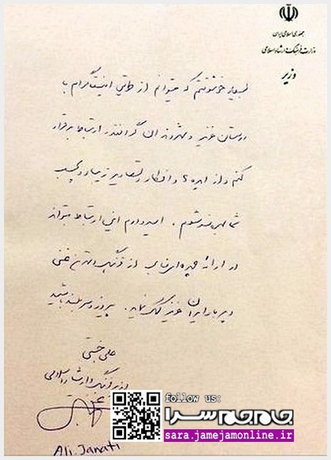 جمهوری اسلامی ایران
وزارت فرهنگ و ارشاد اسلامی
وزیر
بسیار خوشوقتم که میتوانم از طریق اینستاگرام با
دوستان عزیز و هنرمندان گرانقدر ارتباط برقرار
کنم و از ایده ها و افکار و تصاویر زیبا و دلچسب
شما بهره مند شوم . امیدوارم این ارتباط بتواند
در ارائه چهره ای جذاب از فرهنگ و تمدن غنی
و پربار ایران عزیز کمک نماید. پیروز و سربلند باشید
علی جنتی
وزیر فرهنگ و ارشاد اسلامی
Ali Janati
follow us:
جام جم سرا
sara.jamejamonline.ir